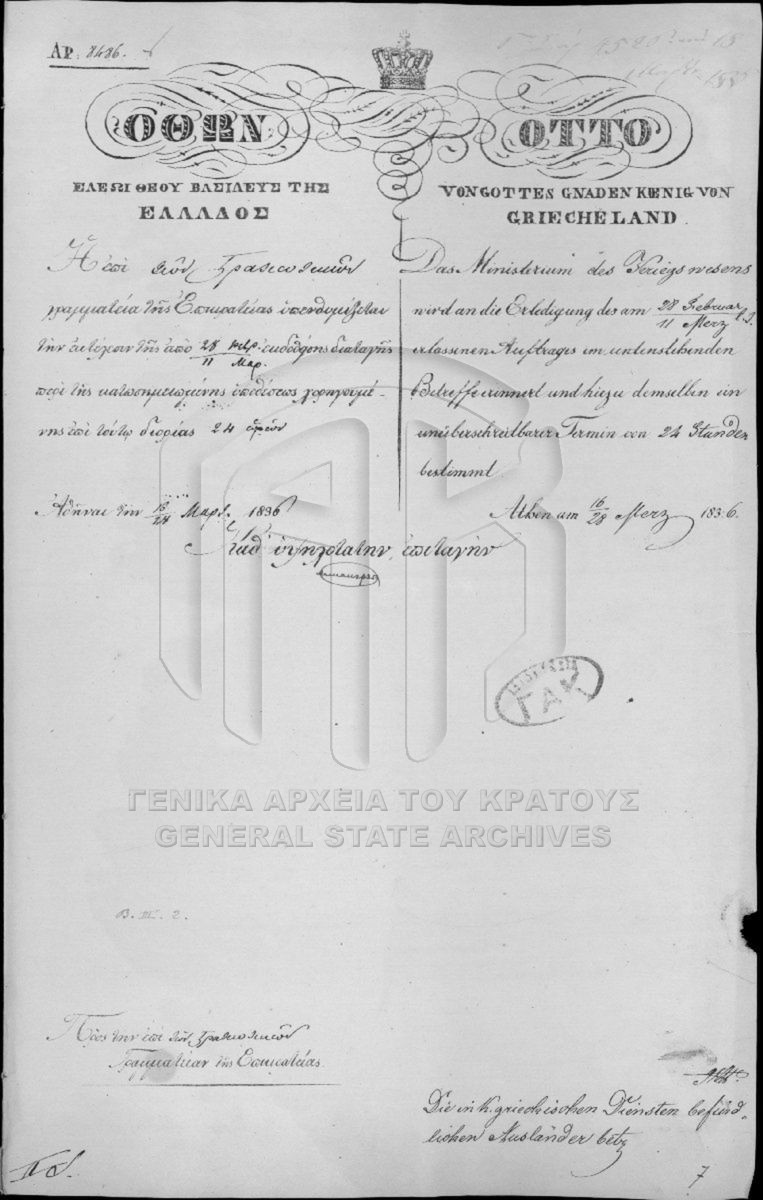 ΑΡ. 8486.
ΟΘΩΝ
ΕΛΕΩι ΘΕΟΥ ΒΑΣΙΛΕΥΣ ΤΗΣ
ΕΛΛΑΔΟΣ
Ἡ ἐπὶ τῶν Στρατιωτικῶν
γραμματεία τῆς Ἐπικρατείας ὑπενθυμίζεται
τὴν ἐκτέλεσιν τῆς ἀπὸ 28 Φεβρ. / 11 Μαρ. ἐκδοθείσης διαταγῆς
περὶ τῆς κατωσημειωμένης ὑποθέσεως χορηγουμέ-
νης ἐπὶ τούτῳ διορίας 24 ὡρῶν
Ἀθῆναι τὴν 16/28 Μαρτ. 1836
OTTO
VON GOTTES GNADEN KŒNIG VON
GRIECHELAND
Das Ministerium des Kriegswesens
wird an die Erledigung des am 28 Februar / 11 Merz l. J.
erlassenen Auftrages im untenstehenden
Betreffe erinnert und hiezu demselben ein
unüberschreitbarer Termin von 24 Stunden
bestimmt
Athen am 16/28 Merz 1836.
Κατ' ὑψηλοτάτην ἐπιταγὴν
ΓΑΚ
ΓΕΝΙΚΑ ΑΡΧΕΙΑ ΤΟΥ ΚΡΑΤΟΥΣ
GENERAL STATE ARCHIVES
B. III. 2.
Πρὸς τὴν ἐπὶ τῶν Στρατιωτικῶν
Γραμματείαν τῆς Ἐπικρατείας.
Die in K. griechischen Diensten befind-
lichen Ausländer betr
7